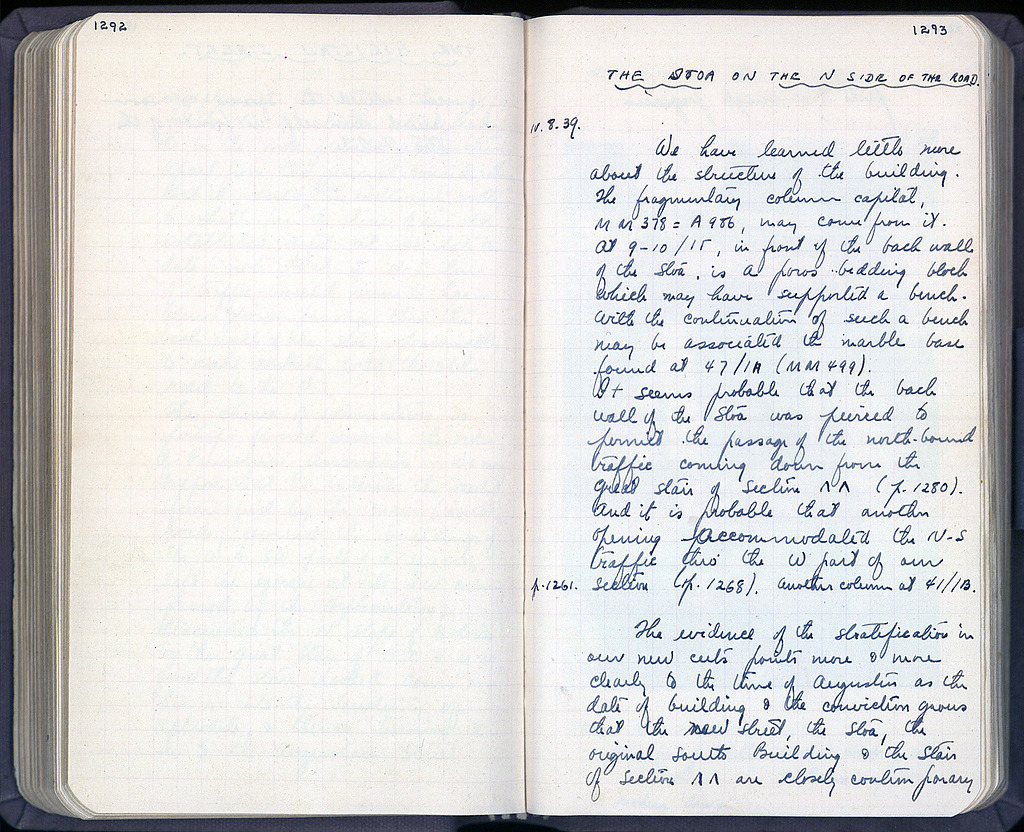 1292
1293
THE STOA ON THE N SIDE OF THE ROAD.
IV.8.39.
We have learned little more
about the structure of the building.
The fragmentary column capital,
MM 378 = A 986, may come from it.
At 9-10/IE, in front of the back wall
of the Stoa, is a poros bedding block
which may have supported a bench.
With the continuation of such a bench
may be associated the marble base
found at 47/IA (MM 499).
It seems probable that the back
wall of the Stoa was peirced to
permit the passage of the north-bound
traffic coming down from the
great stair of Section ΛΛ (p. 1280).
And it is probable that another
opening accommodated the N-S
traffic thro' the W part of our
p.1261. section (p. 1268). Another column at 41/IB.
The evidence of the stratification in
our new cuts points more & more
clearly to the time of Augustus as the
date of building & the conviction grows
that the new street, the Stoa, the
original South Building & the Stair
of Section ΛΛ are closely contemporary